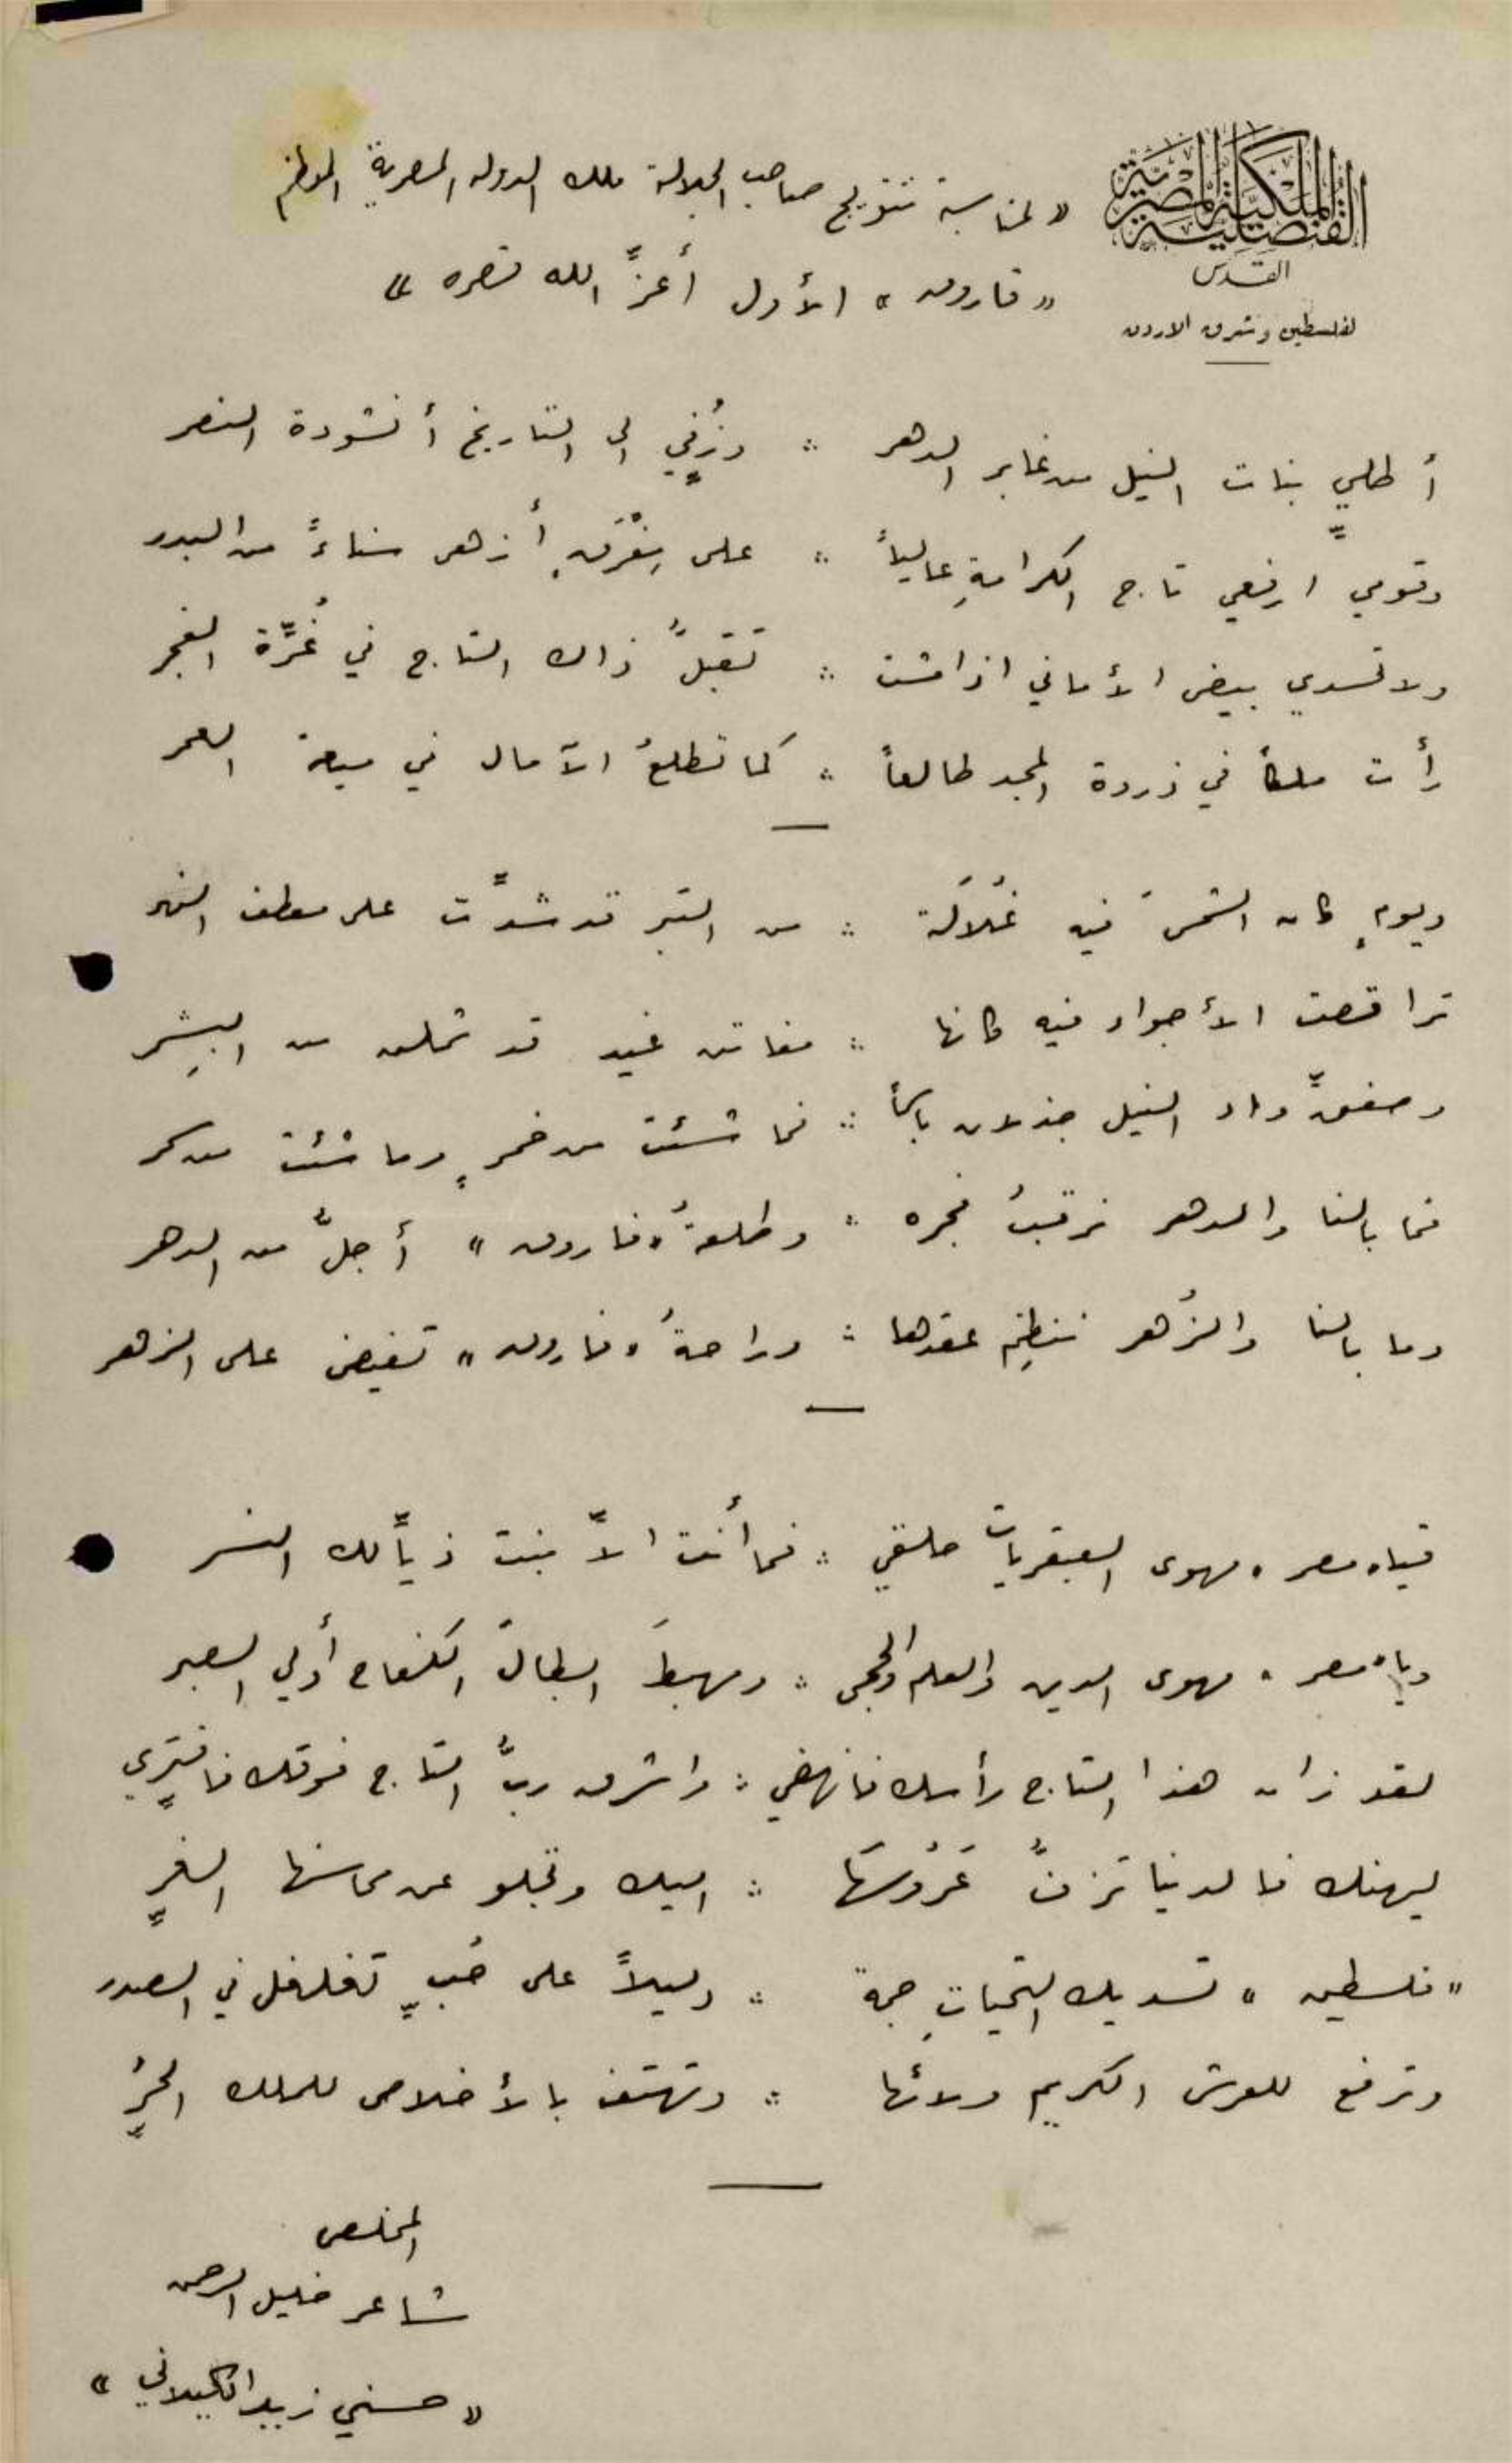 القنصلية الملكية المصرية
القدس
لفلسطين وشرق الاردن
« لمناسبة تتويج صاحب الجلالة ملك الدولة المصرية المعظم
« فاروق » الأول أعزَّ الله نصره »
أطلي بنات النيل من غابر الدهر ∴ وزُفّي الى التاريخ أنشودة النصر
وقومي ارفعي تاج الكرامةِ عالياً ∴ على مِفْرَقٍ أزهى سناءً من البدر
ولا تسدي بيض الأماني اذا مشت ∴ تقبلُ ذاك التاج في غُرَّة الفجر
رأت ملكاً في ذروة المجد طالعاً ∴ كما تطلعُ الآمال في ميعة العمر
ويومٍ كان الشمسَ فيه غُلاَلة ∴ من التبر قد شدَّت على معطف النهر
تراقصت الأجواء فيه كانها ∴ مفاتن غيد قد ثملن من البِشر
وصفقَّ واد النيل جذلان باسماً ∴ فما شئت من خمرٍ وما شئت من سكر
فما بالنا والدهر نرقبُ فجره ∴ وطلعةُ « فاروق » أجلُّ من الدهر
وما بالنا والزُهر ننظِم عقدها ∴ وراحةُ « فاروق » تفيض على الزهر
فياه مصر ، مهوى العبقريات حلقي ∴ فما أنت الاَّ بنت ذيَّالك النسر
وياه مصر ، مهوى الدين والعلم والحجى ∴ ومهبطَ ابطال الكفاح أولي الصبر
لقد زان هذا التاج رأسك فانهضي ∴ واشرق ربُّ التاج فوقك فافترِّي
ليهنك فالدنيا تزفُّ عَرُوسَها ∴ اليك وتجلو عن محاسنها الغرِّ
« فلسطين » تسديك التحياتِ جمة ∴ دليلاً على حُبٍّ تغلغل في الصدر
وترفع للعرش الكريم ولائها ∴ وتهتف بالأخلاص للملك الحُرِّ
المخلص
شاعر خليل الرحمن
« حسني زيد الكيلاني »